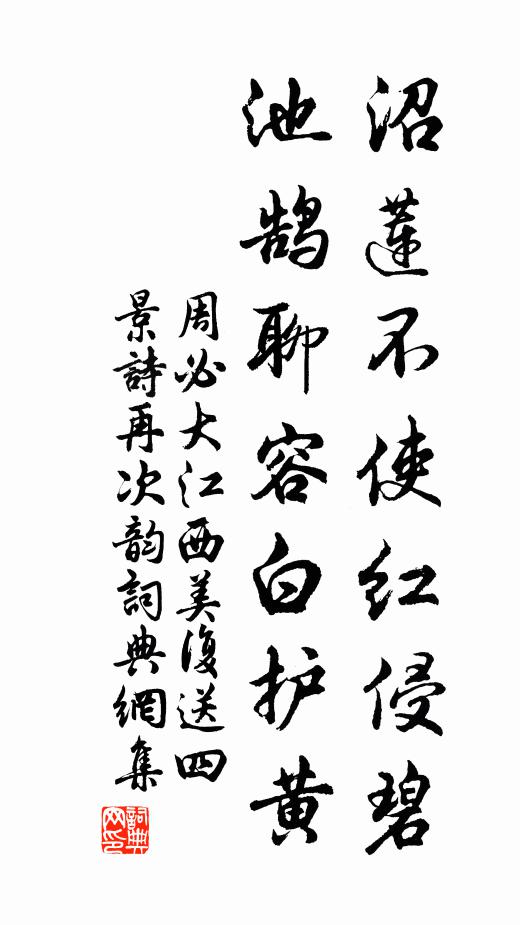 沼蓮不使红侵碧
池鹄聊容白护黄
周必大江西美復送四
景詩再次韵詞典網集
詞典网印